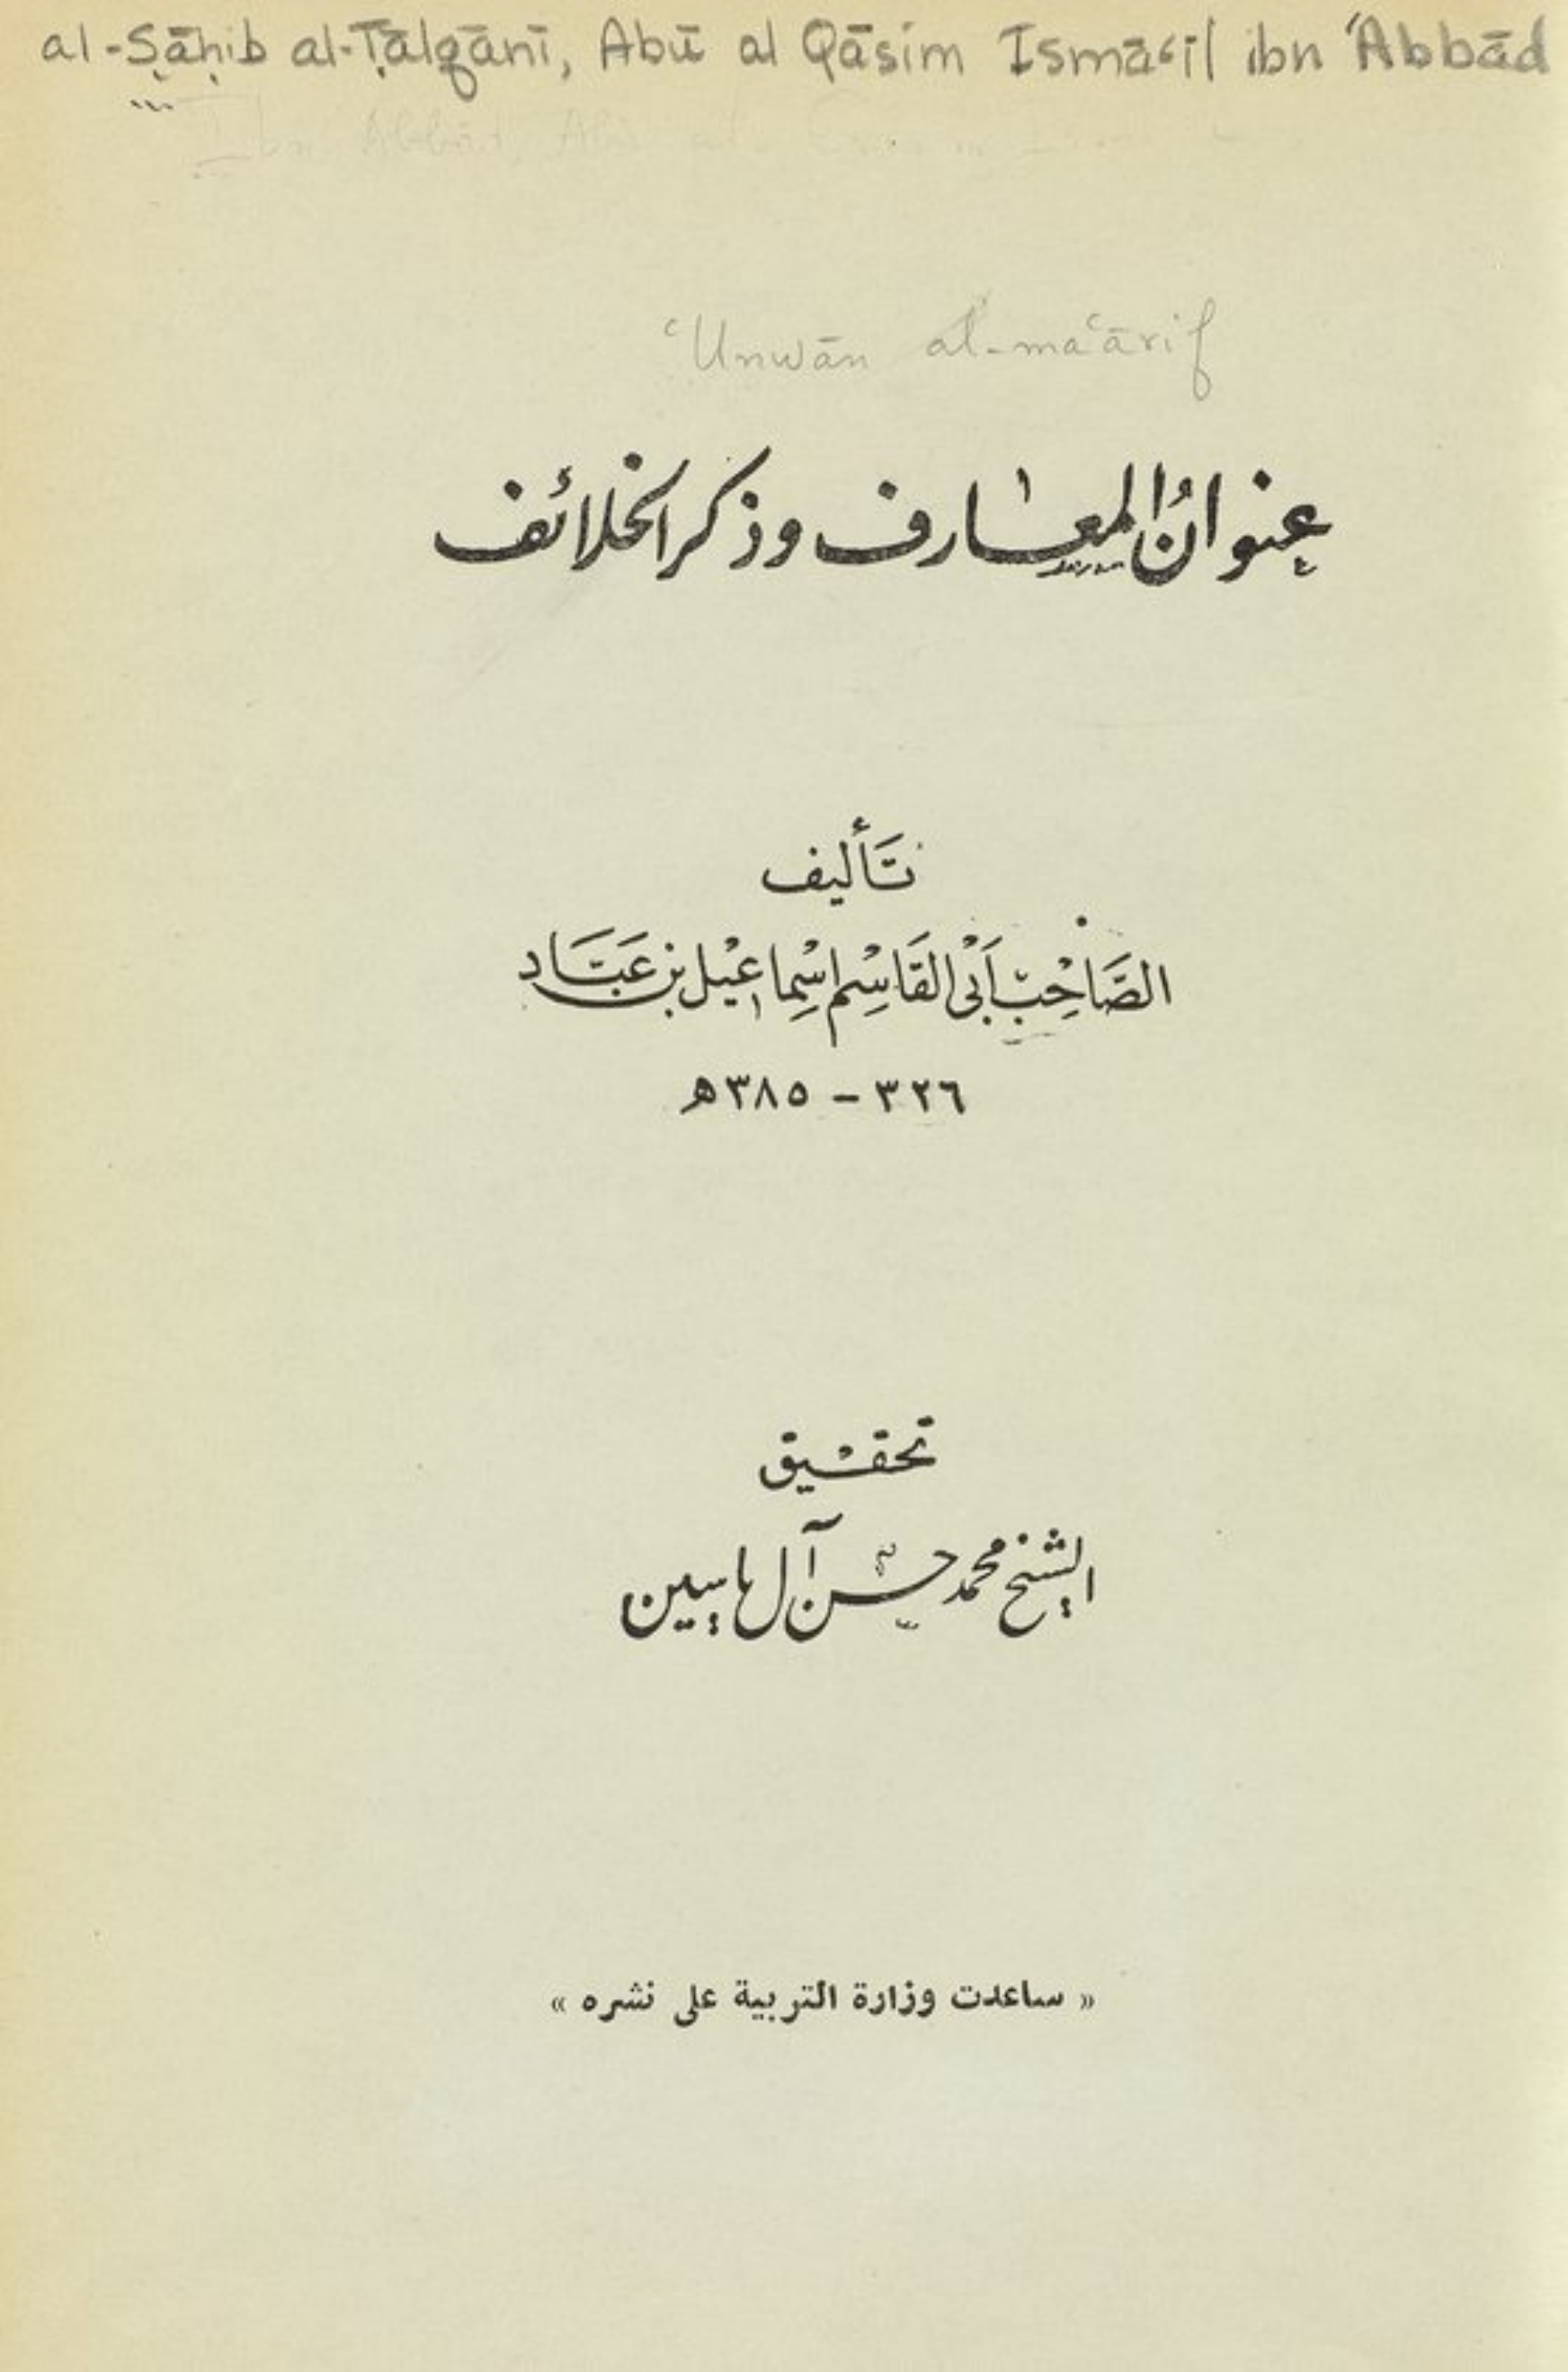 al-Ṣāḥib al-Ṭālqānī, Abū al Qāsim Ismāʿīl ibn ʿAbbād
ʿUnwān al-maʿārif
عنوانُ المعارف وذكر الخلائف
تَأليف
الصَّاحِبْ أَبي القَاسِم اسِْماعِيْل بن عَبَّاد
٣٢٦ - ٣٨٥ھ
تحقيق
الشيخ محمد حسن آل ياسين
« ساعدت وزارة التربية على نشره »